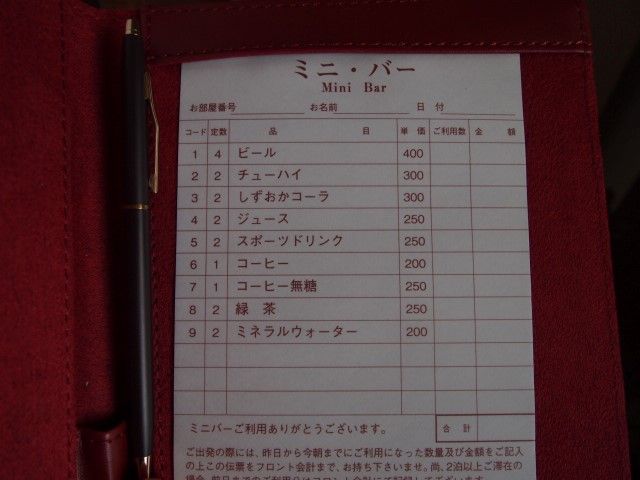 ミニ・バー
Mini Bar
お部屋番号 お名前 日 付
コード 定数 品 目 単 価 ご利用数 金 額
1 4 ビール 400
2 2 チューハイ 300
3 2 しずおかコーラ 300
4 2 ジュース 250
5 2 スポーツドリンク 250
6 1 コーヒー 200
7 1 コーヒー無糖 250
8 2 緑 茶 250
9 2 ミネラルウォーター 200
ミニバーご利用ありがとうございます。 合 計
ご出発の際には、昨日から今朝までにご利用になった数量及び金額をご記入
の上この伝票をフロント会計まで、お持ち下さいませ。尚、2泊以上ご滞在の
場合、前日までのご利用分はフロント会計にて記録してございます。